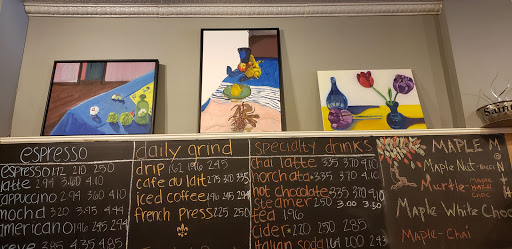 espresso
espresso 172 210 250
latte 294 360 4.10
cappuccino 294 360 4.10
mocha 320 3.95 4.44
americano 196 245 294
daily grind
drip 162 196 245
cafe au lait 275 300 335
iced coffee 196 245 294
french press 225 250
specialty drinks
chai latte 335 370 4.10
horchata 335 370 4.10
hot chocolate 335 370 4.10
steamer 250 3.00 3.50
tea 196
cider 220 250 285
italian soda 164 200 243
MAPLE M
Maple Nut
Murtle
Maple White Choc
Maple-Chai